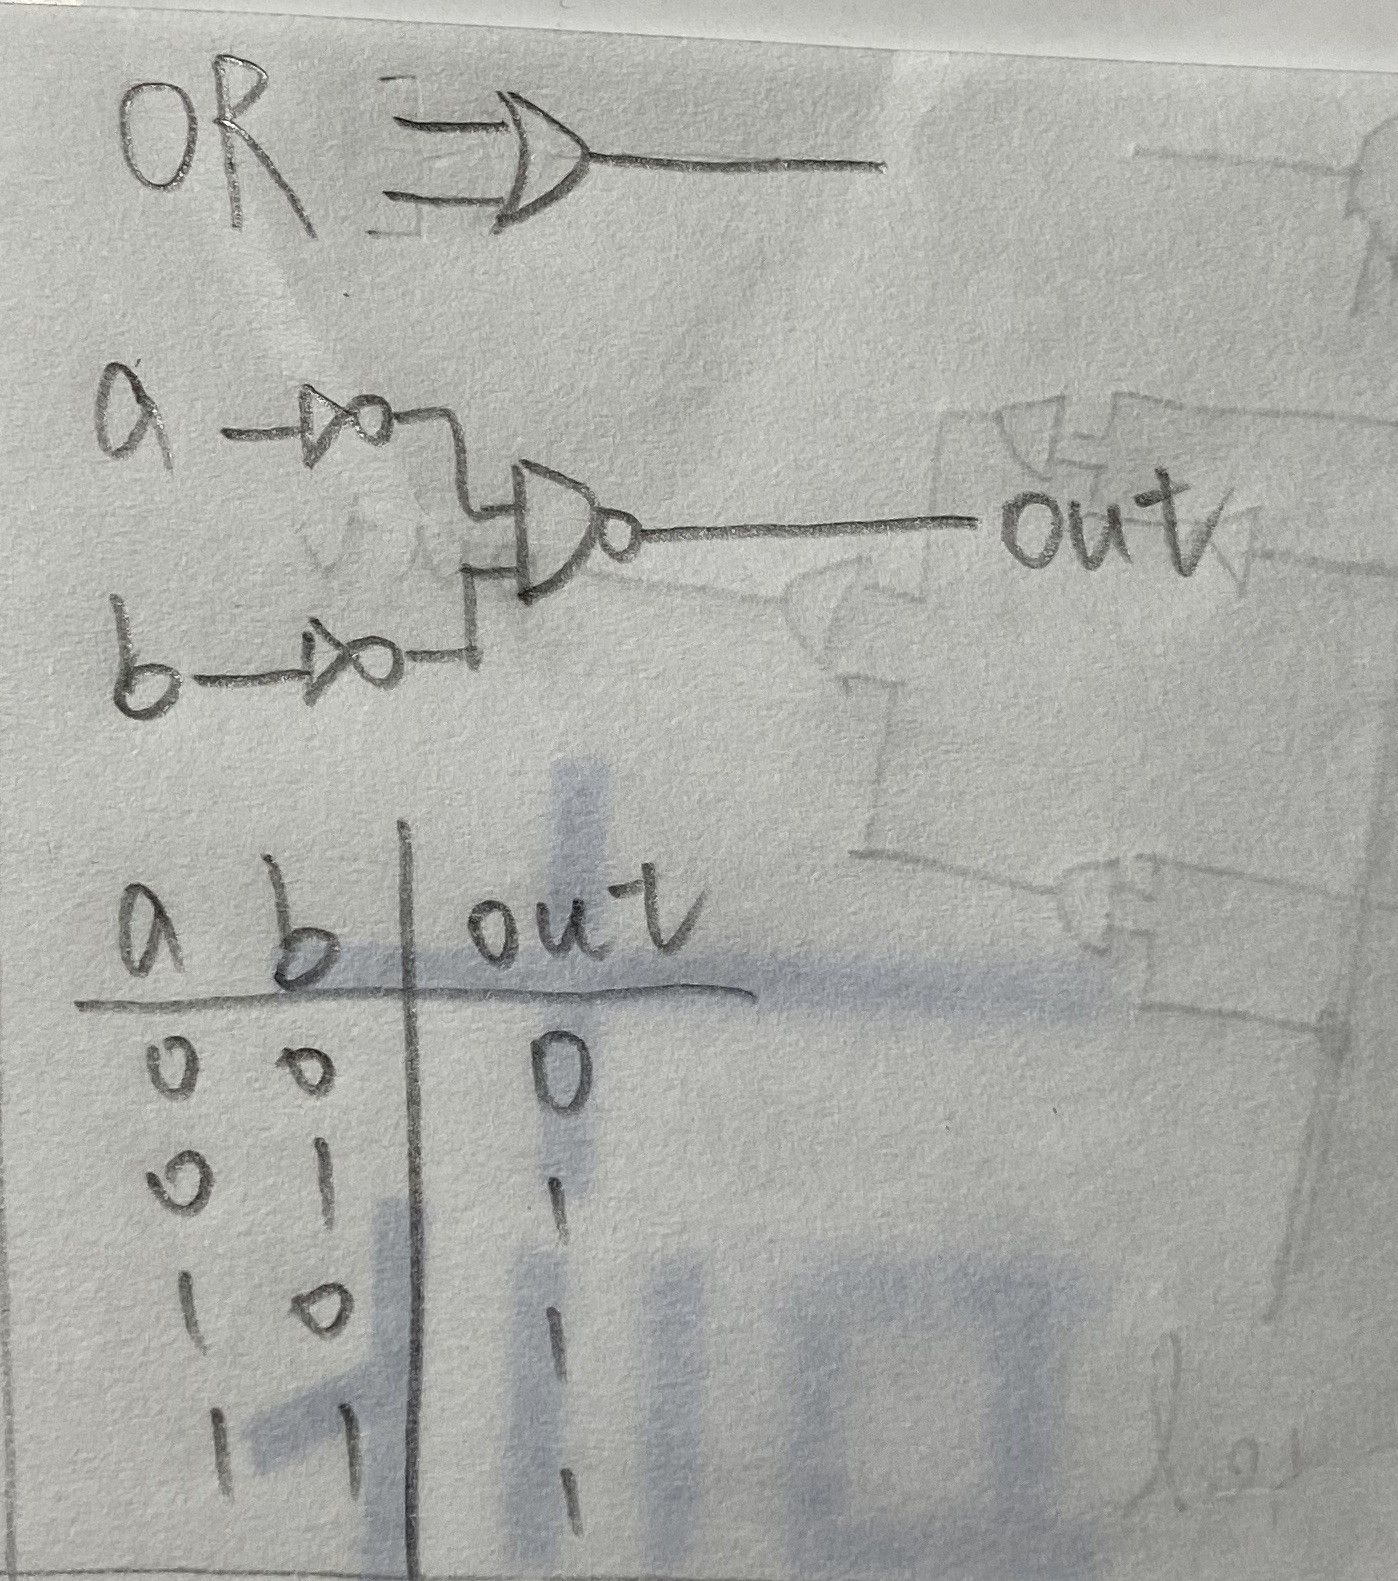 OR
a
out
b
a b out
0 0 0
0 1 1
1 0 1
1 1 1